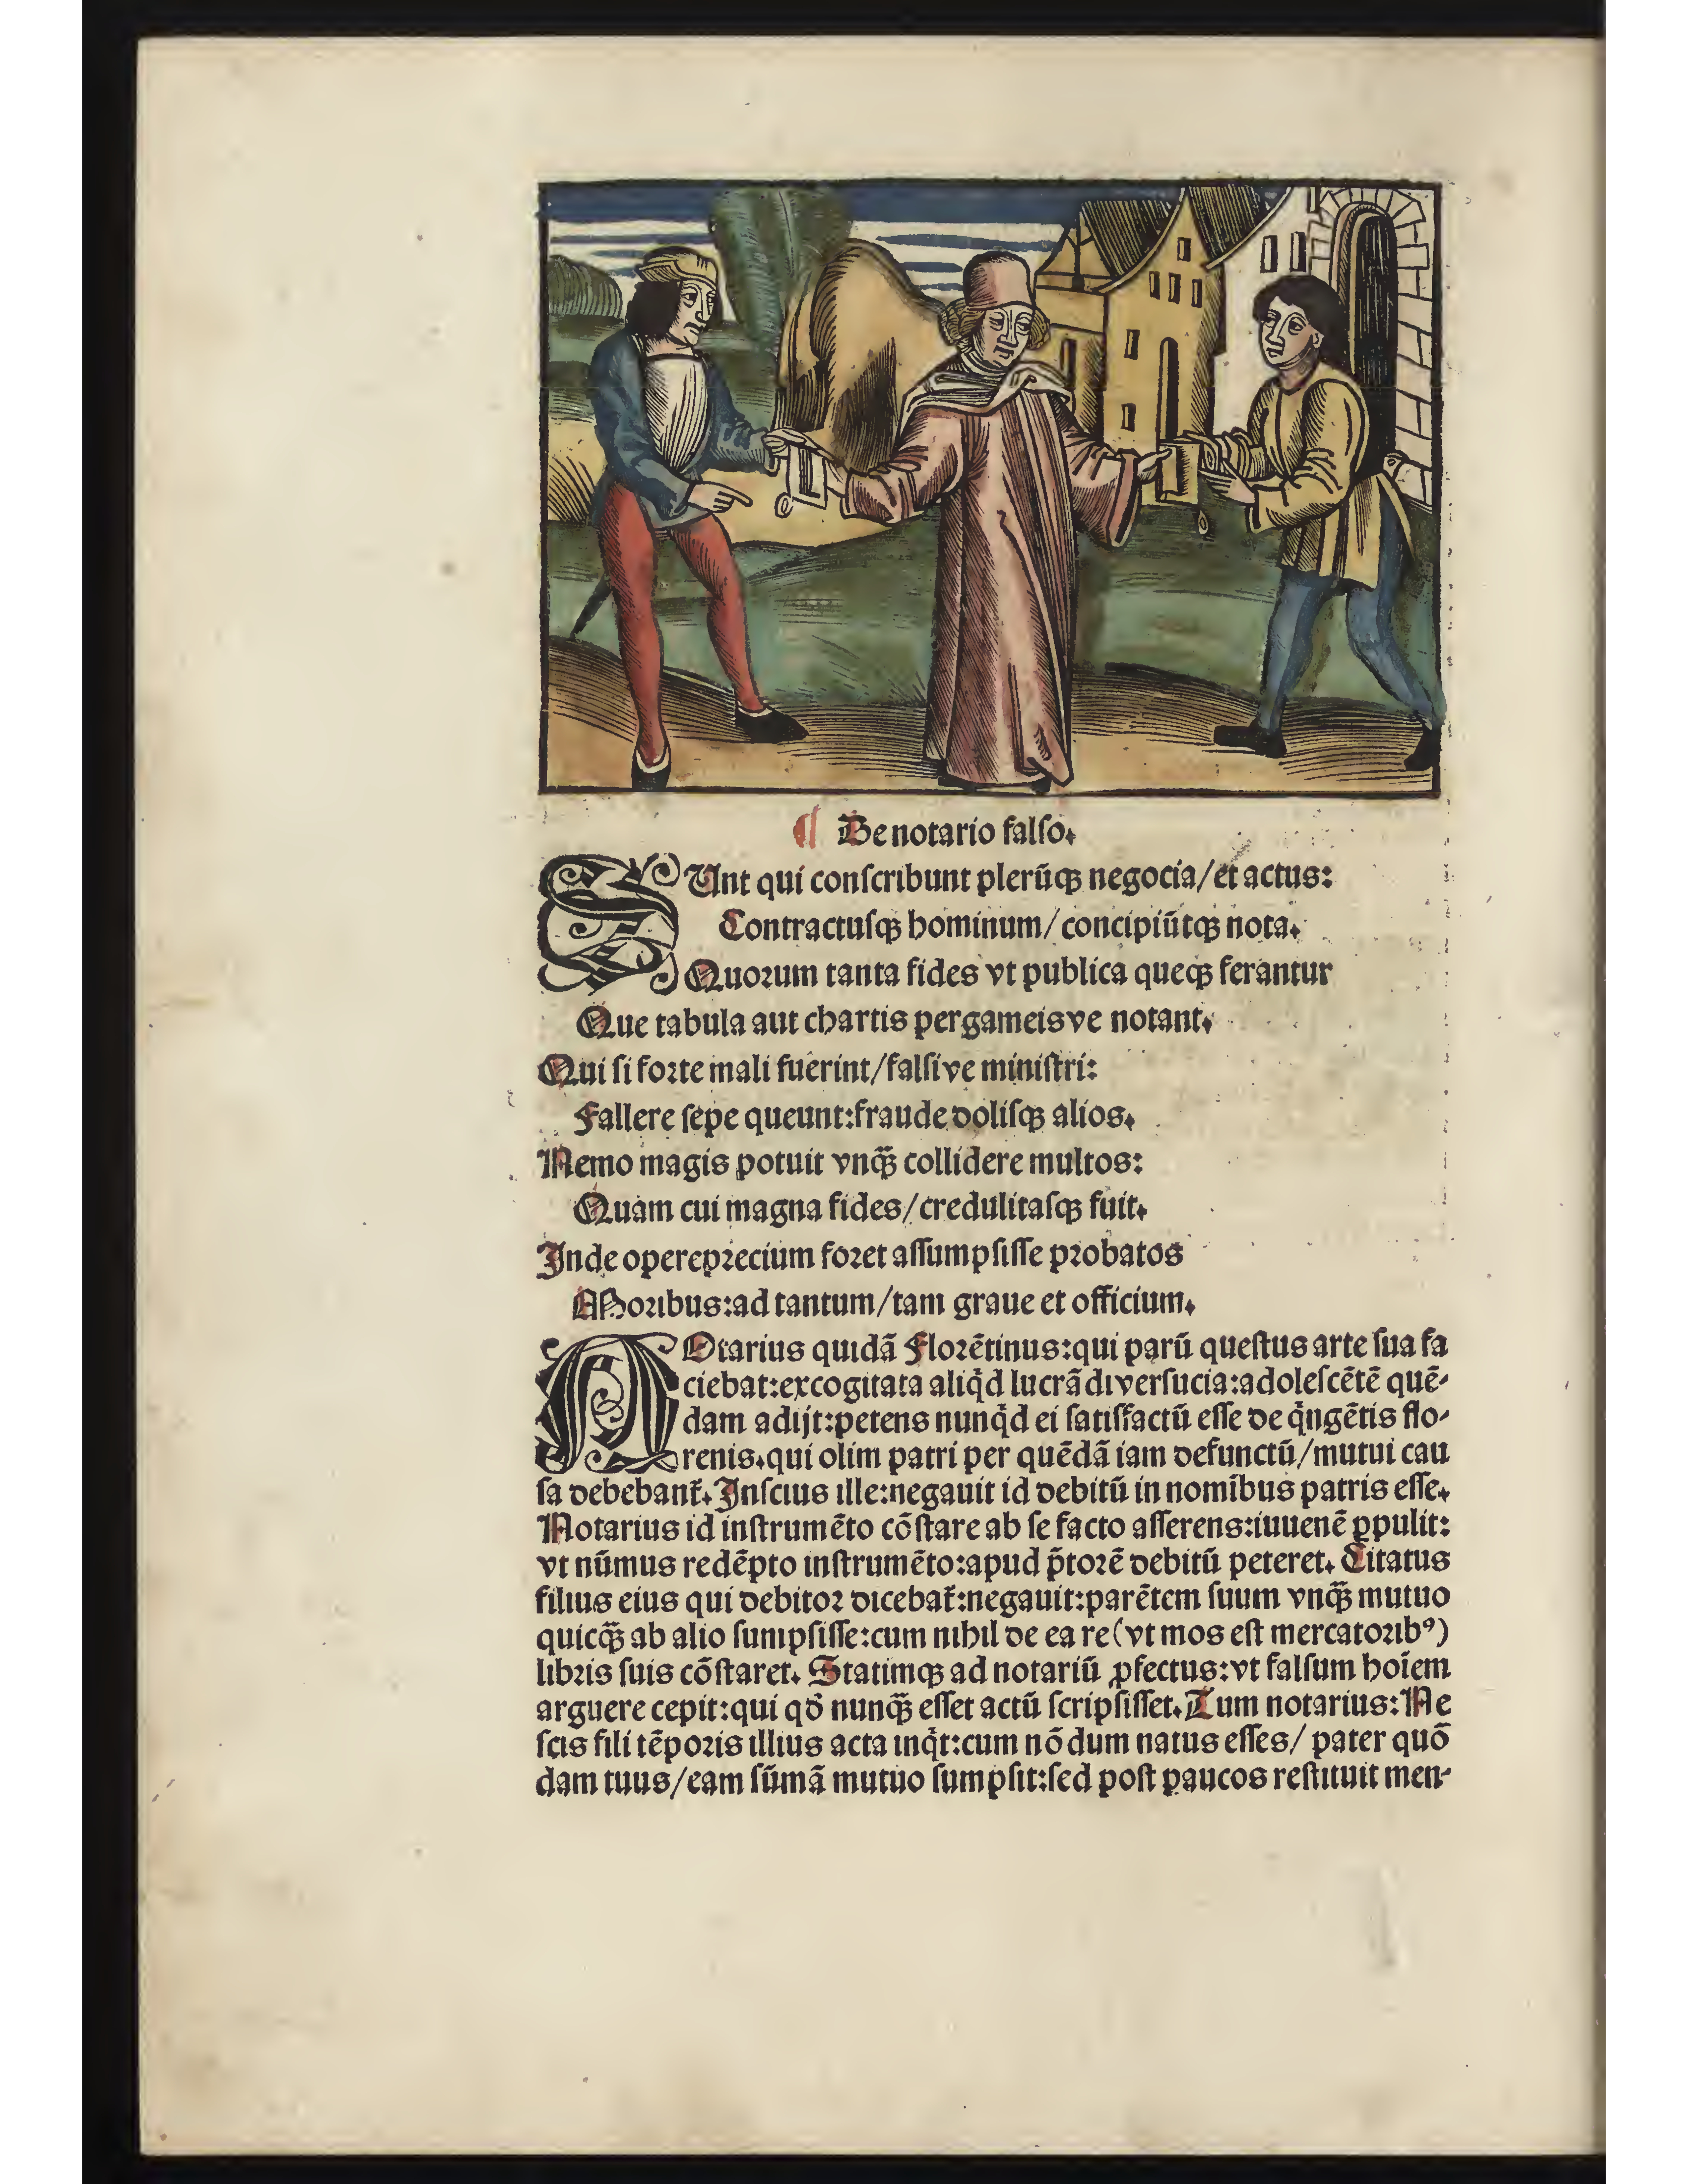 ¶ De notario falso.
SUnt qui conſcribunt plerūqꝫ negocia/et actus:
Contractuſqꝫ hominum/concipiūtqꝫ nota.
Quoꝛum tanta fides vt publica queqꝫ ferantur
Que tabula aut chartis pergameisve notant.
Qui ſi foꝛte mali fuerint/falſive miniſtri:
Fallere ſepe queunt:fraude doliſqꝫ alios.
Nemo magis potuit vnqꝫ̃ collidere multos:
Quam cui magna fides/credulitaſqꝫ fuit.
Inde operepꝛecium foꝛet aſſumpſiſſe pꝛobatos
Moꝛibus:ad tantum/tam graue et officium.
NOtarius quidã Floꝛētinus:qui parū queſtus arte ſua fa
ciebat:excogitata aliq̇d lucrãdi verſucia:adoleſcētē quē-
dam adijt:petens nunq̇d ei ſatiſfactū eſſe de q̇ngētis flo-
renis.qui olim patri per quēdã iam defunctū/mutui cau
ſa debebant᷑. Inſcius ille:negauit id debitū in nomībus patris eſſe.
Notarius id inſtrumēto cōſtare ab ſe facto aſſerens:iuuenē ꝑpulit:
vt nūmus redēpto inſtrumēto:apud p̄toꝛē debitū peteret. Citatus
filius eius qui debitoꝛ dicebat᷑:negauit:parētem ſuum vnqꝫ̃ mutuo
quicqꝫ̃ ab alio ſumpſiſſe:cum nihil de ea re(vt mos eſt mercatoꝛibꝰ)
libꝛis ſuis cōſtaret. Statimqꝫ ad notariū ꝓfectus:vt falſum hoīem
arguere cepit:qui qď nunqꝫ̃ eſſet actū ſcripſiſſet. Tum notarius:Ne
ſcis fili tēpoꝛis illius acta inq̇t:cum nō dum natus eſſes/ pater quō
dam tuus/eam ſūmã mutuo ſumpſit:ſed poſt paucos reſtituit men-